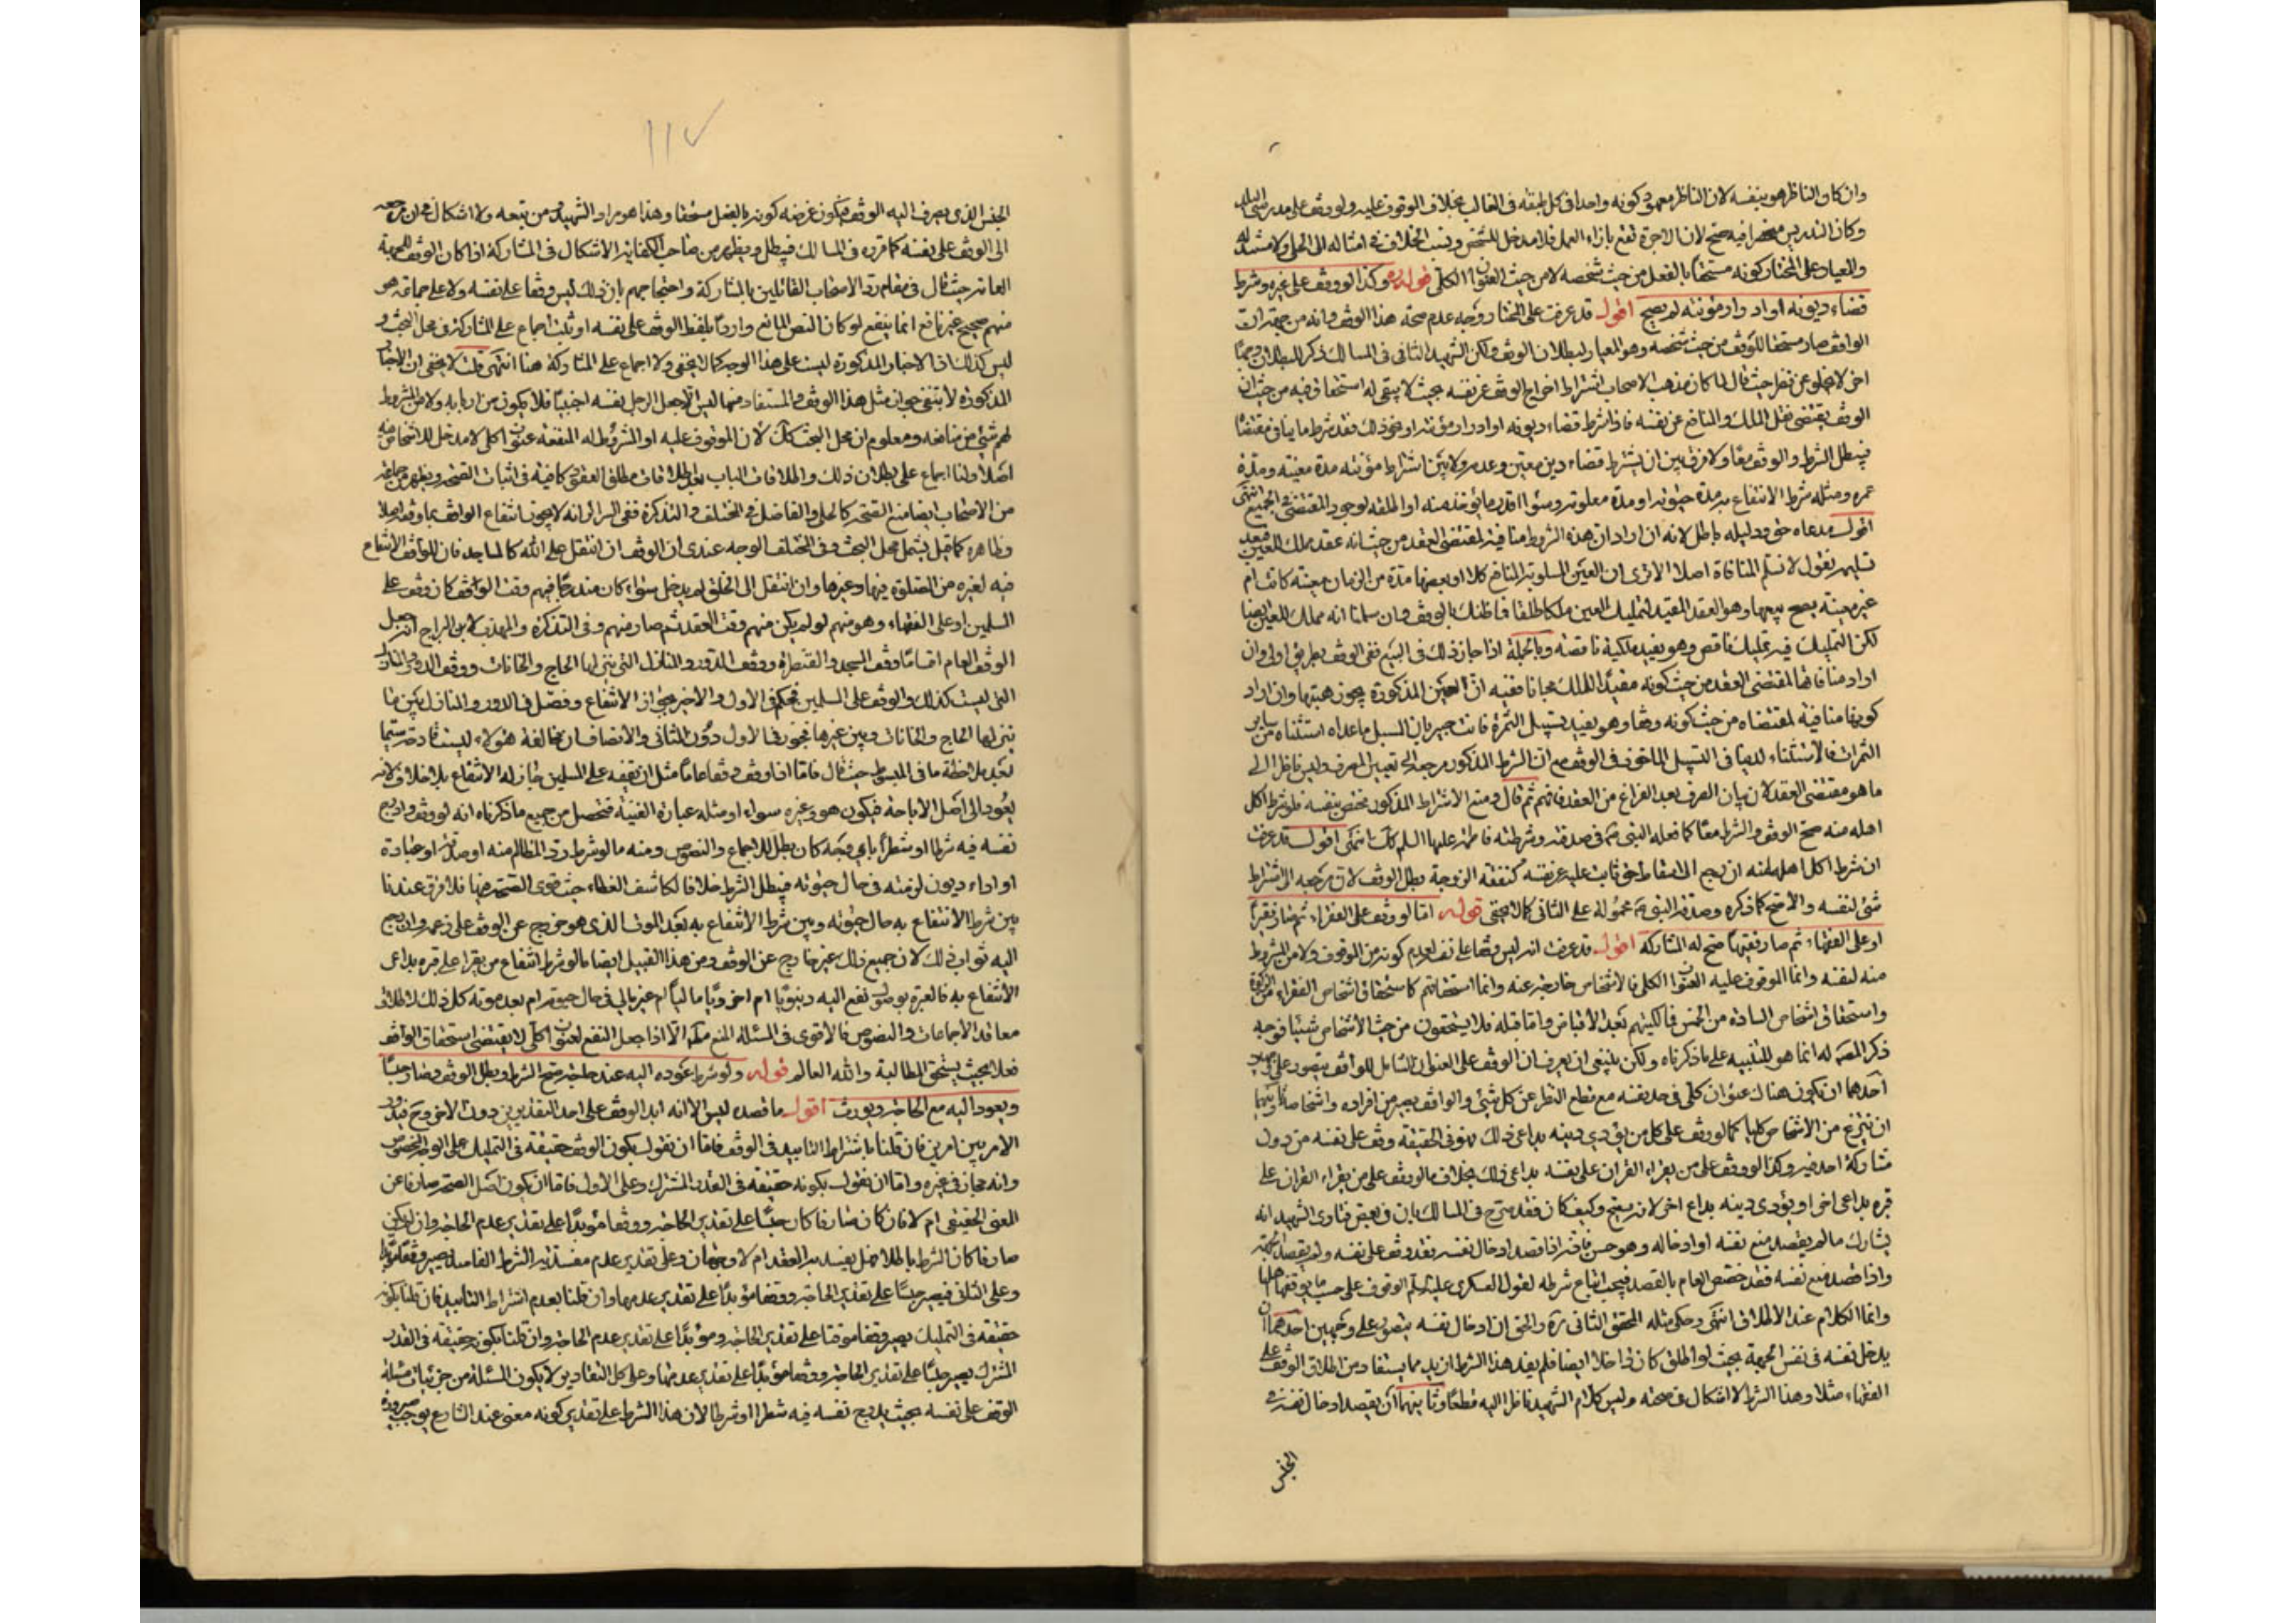 وان كان الناظر هو بنفسه لان الناظر كونه واحدا فى كل طبقه فى الغالب بخلاف الموقوف عليه ولو وقف على مدرس
وكان التدريس منحصرا فيه صح لان الاجرة تقع بازاء العمل فلا مدخل للشخص ونسب الخلاف فى امثاله الى الحلى ولا مستند له
والعيار على المختار كونه مستحقا بالفعل من حيث شخصه لا من حيث العنوان الكلى قوله وكذا لو وقف على غيره وشرط
قضاء ديونه او ادرار مؤنته لم يصح اقول قد عرفت على المختار وجه عدم صحة هذا الوقف وانه من جهة ان
الواقف صار مستحقا للوقف من حيث شخصه وهو المعيار لبطلان الوقف ولكن الشهيد الثانى فى المسالك ذكر للبطلان وجها
اخر لا يخلو عن نظر حيث قال لما كان مذهب الاصحاب اشتراط اخراج الوقف عن نفسه بحيث لا يبقى له استحقاق فيه من حيث ان
الوقف يقتضى نقل الملك والمنافع عن نفسه فاذا شرط قضاء ديونه او ادرار مؤنته او نحو ذلك فقد شرط ما ينافى مقتضاه
فيبطل الشرط والوقف معا ولا فرق بين ان يشترط قضاء دين معين وعدمه ولا بين اشتراط مؤنته مدة معينة ومدة
عمره ومثله شرط الانتفاع به مدة حيوته او مدة معلومة وسواء قدر ما يؤخذ منه او اطلقه لوجود المقتضى فى الجميع انتهى
اقول مدعاه حق ودليله باطل لانه ان اراد ان هذه الشروط منافية لمقتضى العقد من حيث انه عقد مملك للعين فبعد
تسليمه نقول لا نسلم المنافاة اصلا الا ترى ان العين المسلوبة المنافع كلا او بعضها مدة من الزمان معينة كانت ام
غير معينة يصح بيعها وهو العقد المفيد لتمليك العين ملكا طلقا فما ظنك بالوقف وان سلمنا انه مملك للعين ايضا
لكن التمليك فيه تمليك ناقص وهو يفيد ملكية ناقصة وبالجملة اذا جاز ذلك فى البيع ففى الوقف بطريق اولى وان
اراد منافاتها لمقتضى العقد من حيث كونه مفيدا للملك مجانا ففيه ان العين المذكورة يجوز هبتها وان اراد
كونها منافية لمقتضاه من حيث كونه وقفا وهو يفيد تسبيل الثمرة فانت خبير بان السبل ما عداه استثناه من ساير
الثمرات فالاستثناء لا ينافى التسبيل الماخوذ فى الوقف مع ان الشرط المذكور مرجعه الى تعيين المصرف وليس ناظرا الى
ما هو مقتضى العقد لان بيان المصرف بعد الفراغ من العقد فافهم ثم قال ومنع الاشتراط المذكور مختص بنفسه فلو شرط اكل
اهله منه صح الوقف والشرط معا كما فعله النبى ص فى صدقته وشرطته فاطمة عليها السلم كك انتهى اقول قد عرفت
ان شرط اكل اهله منه ان رجع الى اسقاط حق ثابت عليه عن نفسه كنفقة الزوجة بطل الوقف لان مرجعه الى اشتراط
شئ لنفسه والا صح كما ذكره وصدقة النبى ص محمولة على الثانى كما لا يخفى قوله اما لو وقف على الفقراء ثم صار فقيرا
او على الفقهاء ثم صار فقيها صح له المشاركة اقول قد عرفت انه ليس وقفا على نفسه لعدم كونه من الموقوف ولا من الشروط
منه لنفسه وانما الموقوف عليه العنوان الكلى فالاشخاص خارجة عنه وانما استحقاقهم كاستحقاق اشخاص الفقراء من الزكوة
واستحقاق اشخاص السادة من الخمس فمالكيتهم بعد الاقباض واما قبله فلا يستحقون من حيث الاشخاص شيئا فوجه
ذكر المص له انما هو للتنبيه على ما ذكرناه ولكن ينبغى ان يعرف ان الوقف على العنوان الشامل للواقف يتصور على
احدهما ان يكون هناك عنوان كلى فى حد نفسه مع قطع النظر عن كل شئ والواقف يصير من افراده واشخاصه وثانيهما
ان ينتزع من الاشخاص كليا كما لو وقف على كل من يؤدى دينه بداعى ذلك فهو فى الحقيقة وقف على نفسه من دون
مشاركة احد فيه وكذا لو وقف على من يقراء القران على نفسه بداعى ذلك بخلاف ما لو وقف على من يقراء القران على
قبره بداعى اخر او يؤدى دينه بداع اخر لانه صحيح وكيف كان فقد صرح فى المسالك بان فى بعض فتاوى الشهيد انه
يشارك ما لم يقصد منع نفسه او ادخاله وهو حسن فانه اذا قصد ادخال نفسه فقد وقف على نفسه ولم يقصد الجهة
واذا قصد منع نفسه فقد خصص العام بالقصد فيجب اتباع شرطه لقول العسكرى عليه السلم الوقوف على حسب ما يوقفها اهلها
وانما الكلام عند الاطلاق انتهى وحكى مثله المحقق الثانى ره والحق ان ادخال نفسه يتصور على وجهين احدهما ان
يدخل نفسه فى نفس الجهة بحيث لو اطلق كان داخلا ايضا فلم يفد هذا الشرط ازيد مما يستفاد من اطلاق الوقف على
الفقهاء مثلا وهذا الشرط لا اشكال فى صحته وليس كلام الشهيد ناظرا اليه قطعا وثانيهما ان يقصد ادخال نفسه فى
الجنس
١١٧
الجنس الذى يصرف اليه الوقف فيكون غرضه كونه بالفعل مستحقا وهذا هو مراد الشهيد ومن تبعه ولا اشكال فى ان مرجعه
الى الوقف على نفسه كما قرره فى المسالك فيبطل ويظهر من صاحب الكفاية الاشكال فى المشاركة اذا كان الوقف للجهة
العامة حيث قال فى مقام رد الاصحاب القائلين بالمشاركة واحتجاجهم بان ذلك ليس وقفا على نفسه ولا على جماعة هو
منهم صحيح غير نافع انما ينفع لو كان النص المانع واردا بلفظ الوقف على نفسه او ثبت اجماع على المشاركة فى محل البحث و
ليس كذلك اذ الاخبار المذكورة ليست على هذا الوجه كما لا يخفى ولا اجماع على المشاركة هنا انتهى قلت لا يخفى ان الاخبار
المذكورة لا تنفى جواز مثل هذا الوقف والمستفاد منها ليس الا جعل الرجل نفسه اجنبيا فلا يكون من اربابه ولا من المشروط
لهم شئ من منافعه ومعلوم ان محل البحث كك لان الموقوف عليه او المشروط له المنفعة عنوان كلى لا مدخل للاشخاص فيه
اصلا ولنا اجماع على بطلان ذلك واطلاقات الباب بعد اطلاقات مطلق العقود كافية فى اثبات الصحة ويظهر من جماعة
من الاصحاب ايضا منع الصحة كالحلى والفاضل فى المختلف والتذكرة ففى السرائر انه لا يجوز انتفاع الواقف بما وقفه اصلا
وظاهره كما قيل يشمل محل البحث وفى المختلف الوجه عندى ان الوقف ان انتقل الى الله كالمساجد فان للواقف الانتفاع
فيه لغيره من الصلوة فيها وغيرها وان انتقل الى الخلق لم يدخل سواء كان مندرجا فيهم وقت الوقف كان وقف على
المسلمين او على الفقهاء وهو منهم او لم يكن منهم وقت العقد ثم صار منهم وفى التذكرة والمهذب لابن البراج انه جعل
الوقف العام اقساما وقف المسجد والقنطرة ووقف الدور والمنازل التى ينزلها الحاج والخانات ووقف الدور والمنازل
التى ليست كذلك والوقف على المسلمين فحكم فى الاول والاخير بجواز الانتفاع وفصل فى الدور والمنازل بين ما
ينزلها الحاج والخانات وبين غيرها فجوز فى الاول دون الثانى والانصاف ان مخالفة هؤلاء ليست قادحة سيما
بعد ملاحظة ما فى المبسوط حيث قال فاما اذا وقف وقفا عاما مثل ان يقفه على المسلمين جاز له الانتفاع بلا خلاف لانه
يعود الى اصل الاباحة فيكون هو وغيره سواء او مثله عبارة الغنية فتحصل من جميع ما ذكرناه انه لو وقف وادرج
نفسه فيه شرطا او شطرا باى وجه كان بطل للاجماع والنصوص ومنه ما لو شرط رد المظالم منه او صدقة او عبادة
او اداء ديون لزمته فى حال حيوته فيبطل الشرط خلافا لكاشف الغطاء حيث قوى الصحة فيها فلا فرق عندنا
بين شرط الانتفاع به حال حيوته وبين شرط الانتفاع به بعد الموت الذى هو خروج عن الوقف على زعمه وان رجع
اليه ثواب ذلك لان جميع ذلك غير خارج عن الوقف ومن هذا القبيل ايضا ما لو شرط انتفاع من يقرا على قبره بداعى
الانتفاع به فالعبرة بوصول نفع اليه دنيويا ام اخرويا ماليا ام غير مالى فى حال حيوته ام بعد موته كل ذلك لاطلاق
معاقد الاجماعات والنصوص فالاقوى فى المسئلة المنع مطلقا الا اذا جعل النفع لعنوان كلى لا يقتضى استحقاق الواقف
فعلا بحيث يستحق المطالبة والله العالم قوله ولو شرط عوده اليه عند حاجته صح الشرط وبطل الوقف وصار حبسا
ويعود اليه مع الحاجة ويورث اقول ما قصده ليس الا انه ابد الوقف على احد التقديرين دون الاخر وح فيدور
الامر بين امرين فان قلنا باشتراط التابيد فى الوقف فاما ان نقول بكون الوقف حقيقة فى التمليك على الوجه المخصوص
وانه مجاز فى غيره واما ان نقول بكونه حقيقة فى القدر المشترك وعلى الاول فاما ان يكون اصل الصحة صارفا عن
المعنى الحقيقى ام لا فان كان صارفا كان حبسا على تقدير الحاجة ووقفا مؤبدا على تقدير عدم الحاجة وان لم يكن
صارفا كان الشرط باطلا وهل يفسد به العقد ام لا وجهان وعلى تقدير عدم مفسدية الشرط الفاسد يصير وقفا مؤبدا
وعلى الثانى فيصير حبسا على تقدير الحاجة ووقفا مؤبدا على تقدير عدمها وان قلنا بعدم اشتراط التابيد فان قلنا بكونه
حقيقة فى التمليك يصير وقفا موقتا على تقدير الحاجة ومؤبدا على تقدير عدم الحاجة وان قلنا بكونه حقيقة فى القدر
المشترك يصير حبسا على تقدير الحاجة ووقفا مؤبدا على تقدير عدمها وعلى كل التقادير لا يكون المسئلة من جزئيات مسئلة
الوقف على نفسه بحيث يدرج نفسه فيه شطرا او شرطا لان هذا الشرط على تقدير كونه معنى عند الشارع يوجب صيرورة